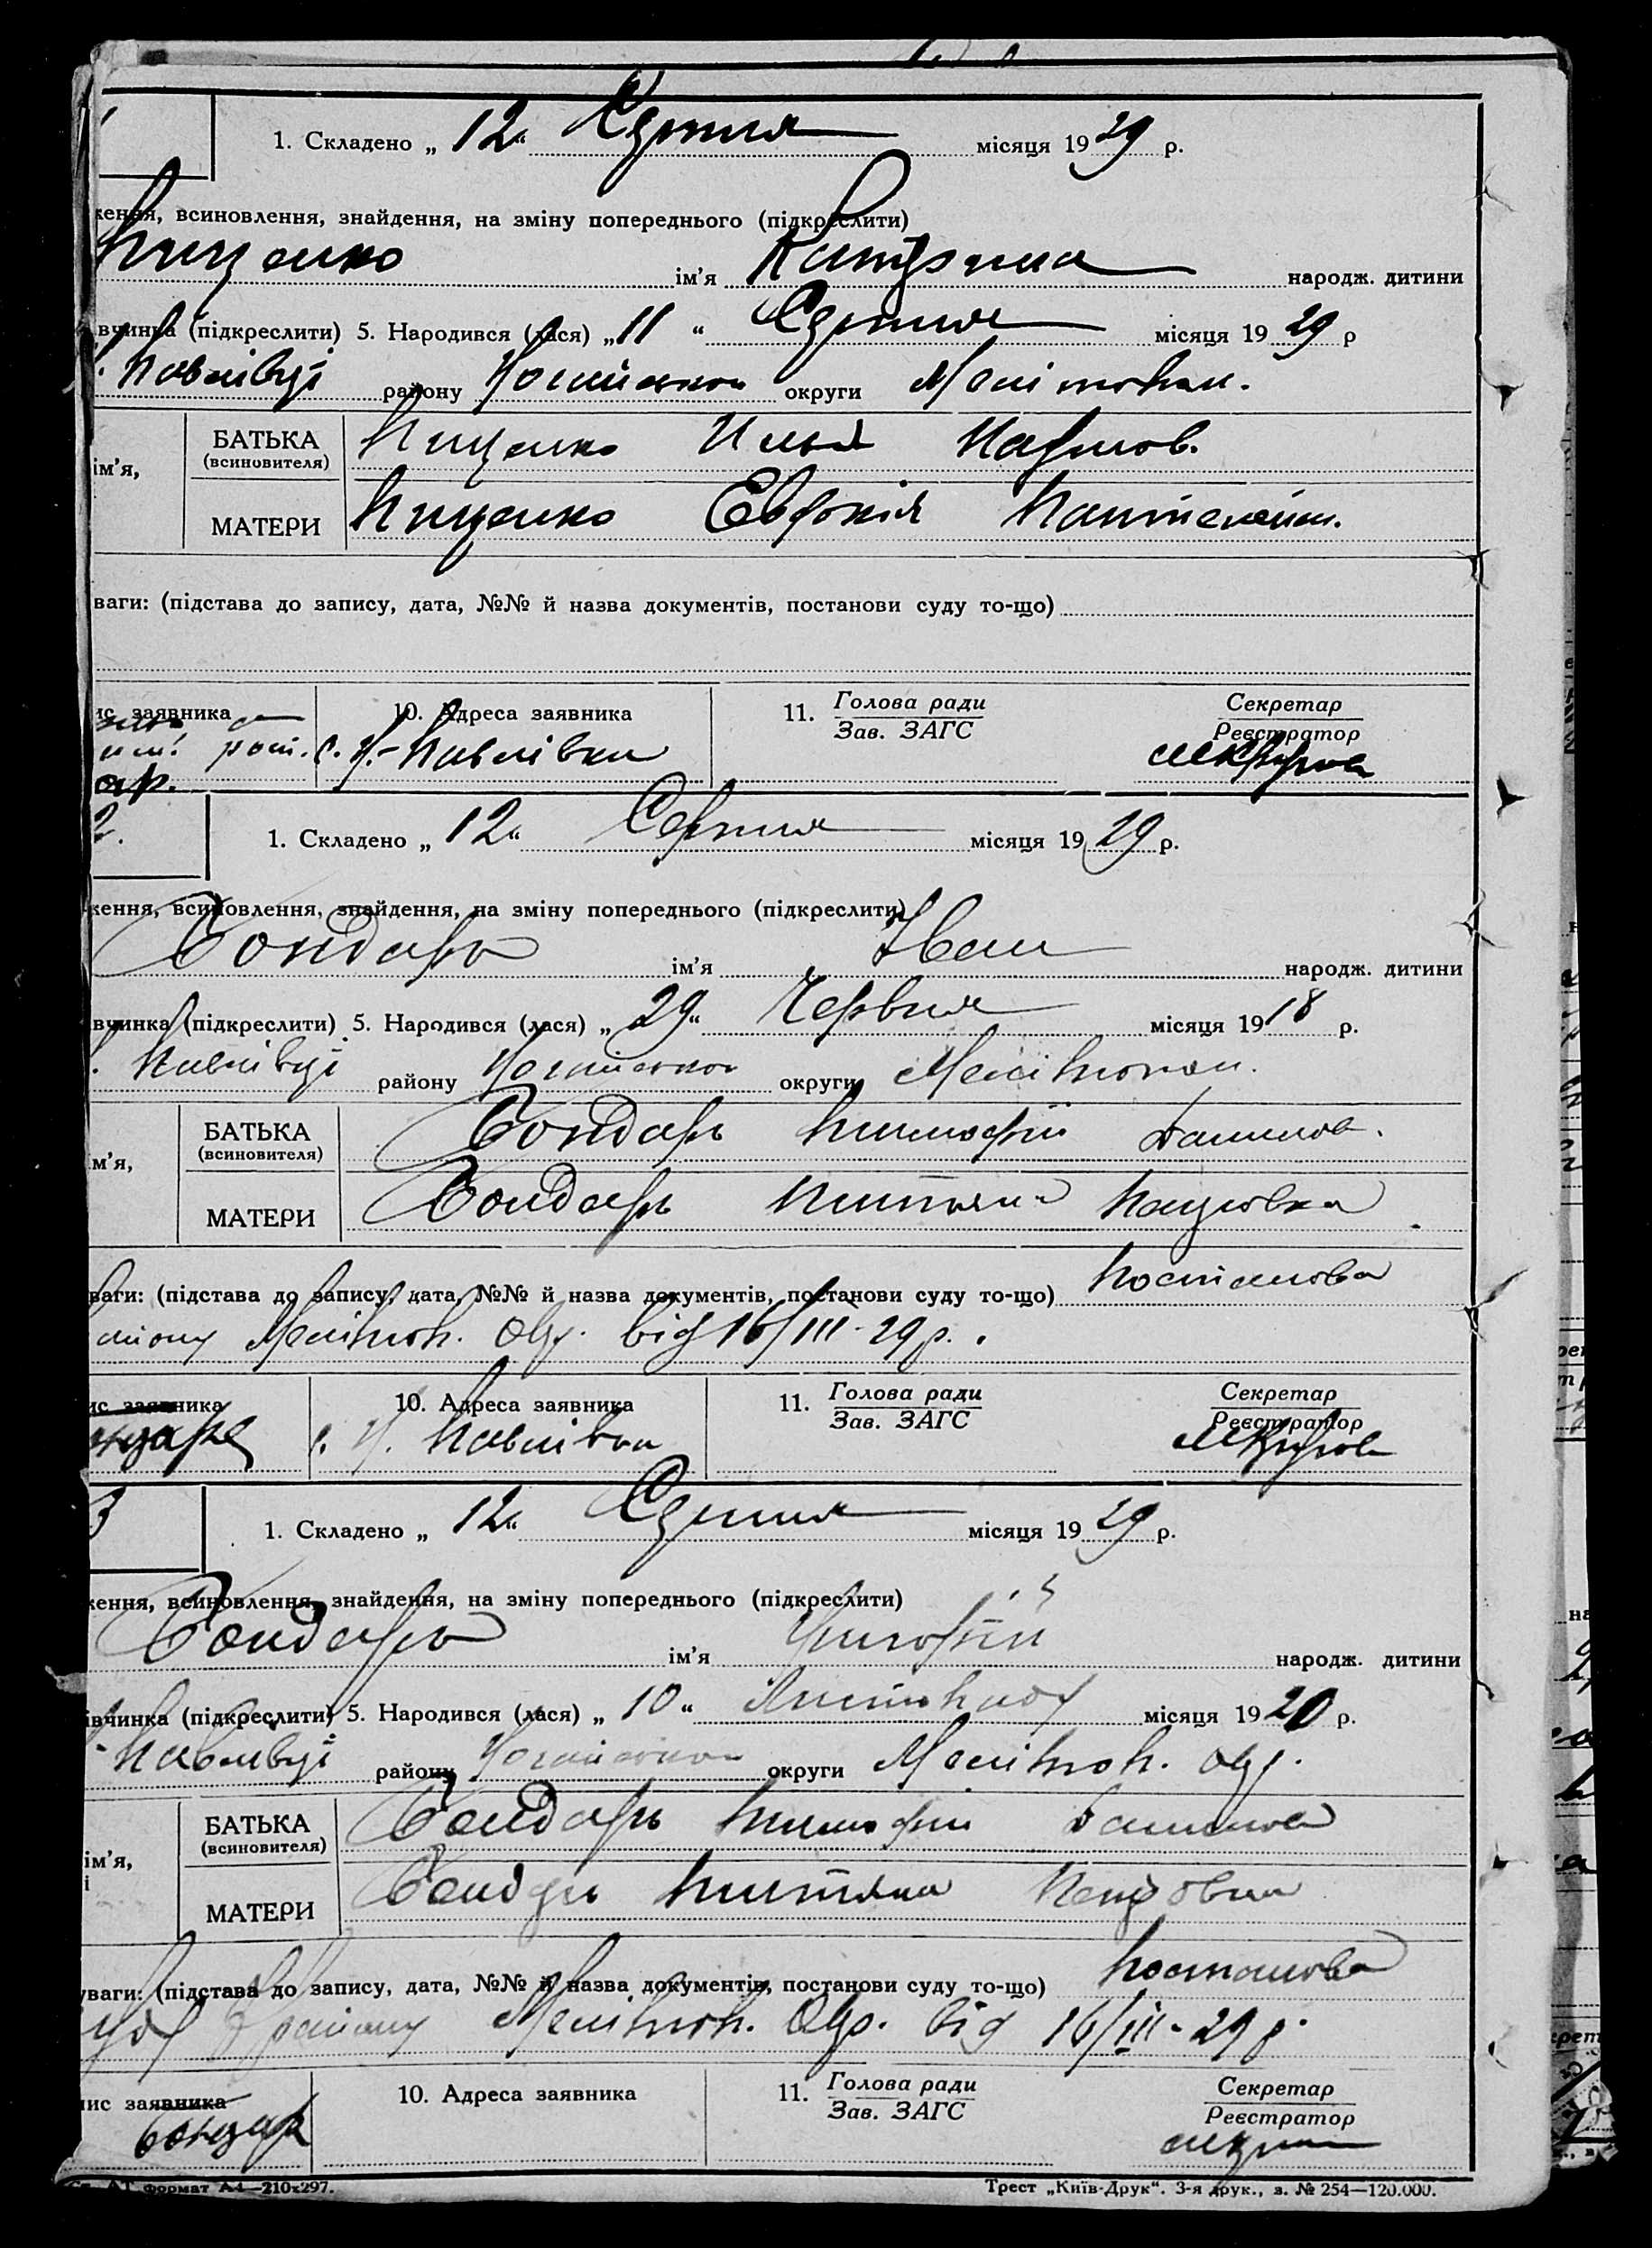 1. Складено „ 12 “ Серпня місяця 1929 р.
ження, всиновлення, знайдення, на зміну попереднього (підкреслити)
Пищенко ім’я Катерина народж. дитини
вчинка (підкреслити) 5. Народився (лася) „ 11 “ Серпня місяця 1929 р
Павлівці району округи Мелітопол.
БАТЬКА Пищенко Илья
ім’я, (всиновителя)
МАТЕРИ Пищенко Евдокія Пантелеймон.
ваги: (підстава до запису, дата, №№ й назва документів, постанови суду то-що)
ис заявника 10. Адреса заявника 11. Голова ради Секретар
Зав. ЗАГС Реєстратор
с. Н.-Павлівка
ар.
2. 1. Складено „ 12 “ Серпня місяця 1929 р.
ження, всиновлення, знайдення, на зміну попереднього (підкреслити)
Бондарь ім’я Иван народж. дитини
вчинка (підкреслити) 5. Народився (лася) „ 29 “ Червня місяця 1918 р.
Павлівці району округи Мелітопол.
БАТЬКА Бондарь Тимофій Данилов.
м’я, (всиновителя)
МАТЕРИ Бондарь Титяна
ваги: (підстава до запису, дата, №№ й назва документів, постанови суду то-що) Постанова
Мелітоп. Окр. від 16/III-29 р.
ис заявника 10. Адреса заявника 11. Голова ради Секретар
Зав. ЗАГС Реєстратор
с. Н. Павлівка
3 1. Складено „ 12 “ Серпня місяця 1929 р.
ження, всиновлення, знайдення, на зміну попереднього (підкреслити)
Бондарь ім’я народж. дитини
івчинка (підкреслити) 5. Народився (лася) „ 10 “ Листопаду місяця 1920 р.
Павлівці району округи Мелітоп. Окр.
БАТЬКА Бондарь Тимофій Данилов
ім’я, (всиновителя)
і
МАТЕРИ Бондарь Титяна Петровна
уваги: (підстава до запису, дата, №№ й назва документів, постанови суду то-що) Постанова
району Мелітоп. Окр. від 16/III-29 р.
ис заявника 10. Адреса заявника 11. Голова ради Секретар
Зав. ЗАГС Реєстратор
Бондар
формат А4—210x297. Трест „Київ-Друк“. 3-я друк., з. № 254—120.000.